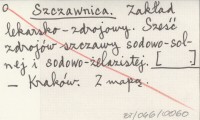 o Szczawnica. Zakład
lekarsko-zdrojowy. Sześć
zdrojów szczawy sodowo-sol-
nej i sodowo-żelazistej. [ ]
— Kraków. Z mapą.
21/046/10060